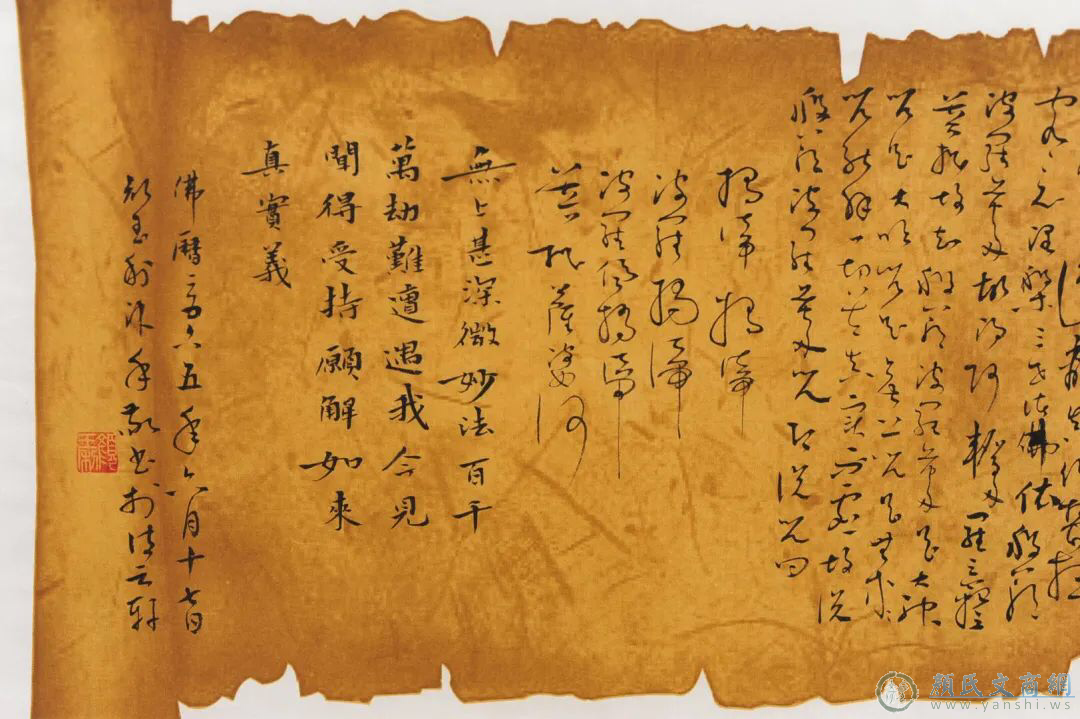 究竟涅槃三世諸佛依般若
波羅蜜多故得阿耨多羅三藐三
菩提故知般若波羅蜜多是大神
咒是大明咒是無上咒是無等
咒能除一切苦真實不虛故說
般若波羅蜜多咒即說咒曰
揭諦揭諦
波羅揭諦
波羅僧揭諦
菩提薩婆訶
無上甚深微妙法百千
萬劫難遭遇我今見
聞得受持願解如來
真實義
佛曆二五六五年六月十七日
顏玉利沐手敬書於清云軒
顏氏文商網
www.yanshi.ws